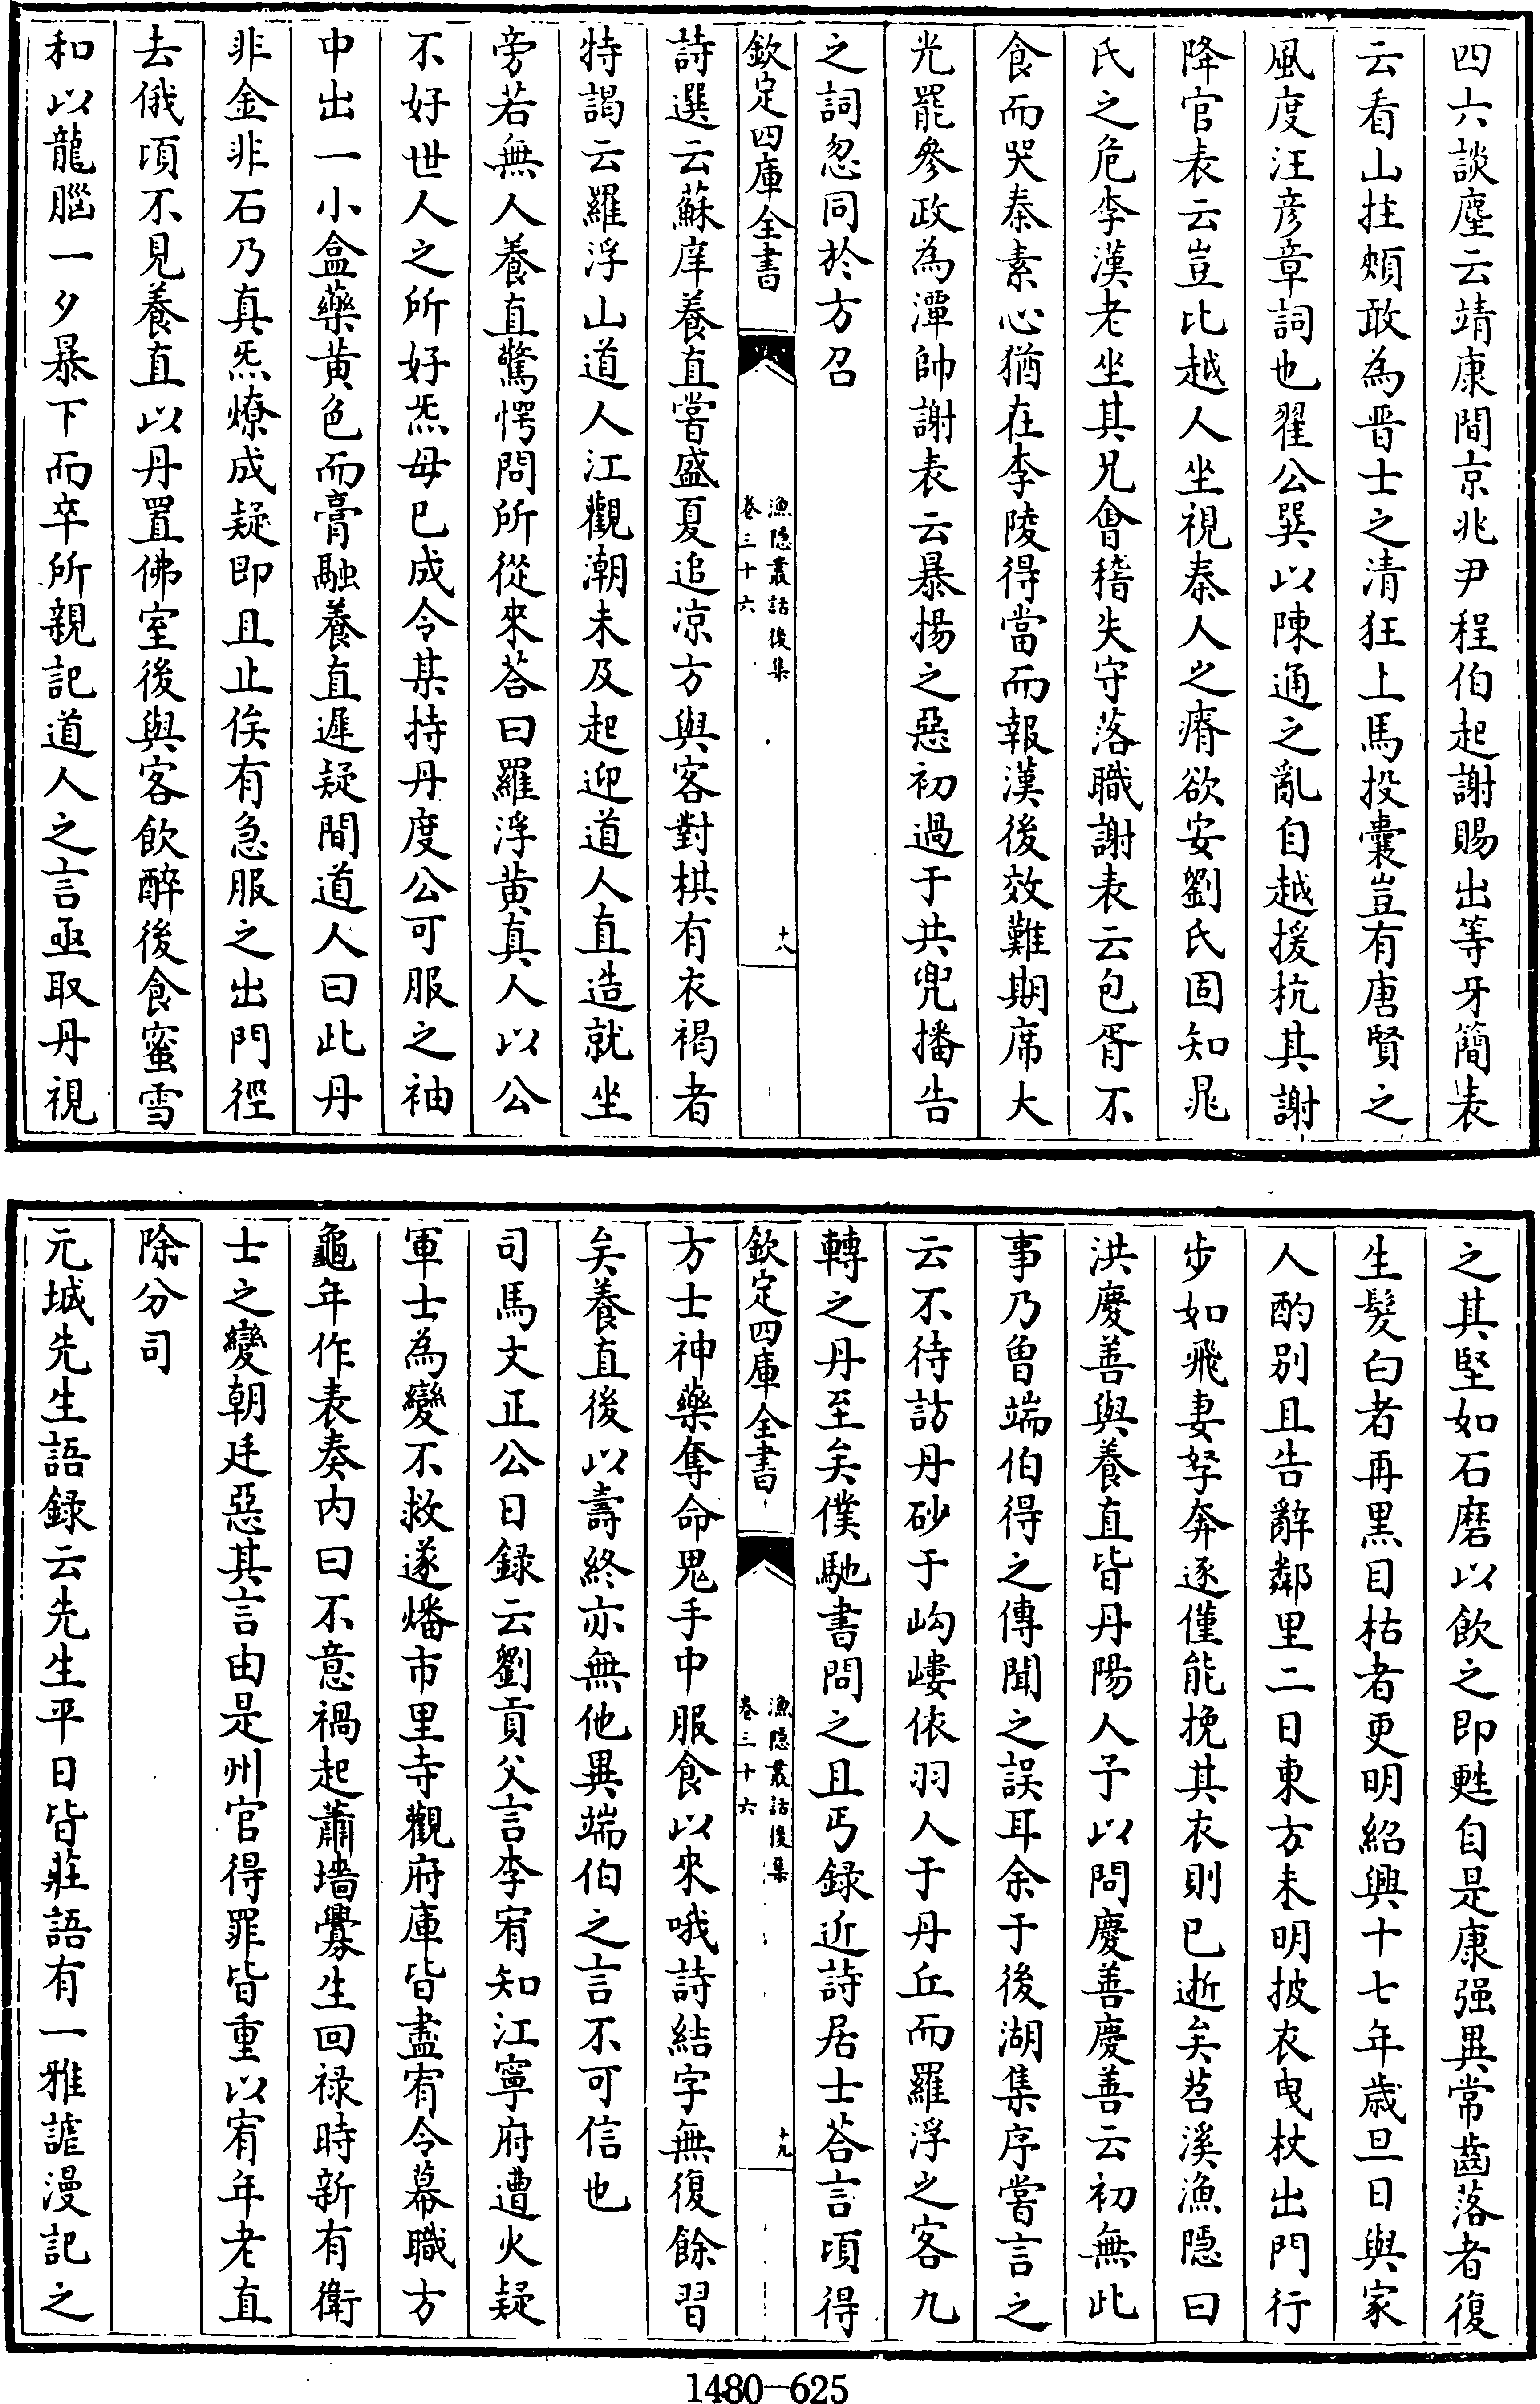 四六談麈云靖康間京兆尹程伯起謝賜出等牙簡表
云看山拄頰敢為晋士之清狂上馬投囊豈有唐賢之
風度汪彦章詞也翟公巽以陳通之亂自越援杭其謝
降官表云豈比越人坐視秦人之瘠欲安劉氏固知晁
氏之危李漢老坐其兄㑹稽失守落職謝表云包胥不
食而哭秦素心猶在李陵得當而報漢後效難期席大
光罷參政為潭帥謝表云暴揚之惡初過于共兜播告
之詞忽同於方召
欽定四庫全書
漁隱叢話後集
卷三十六
十八
詩選云蘇庠養直嘗盛夏追凉方與客對棋有衣褐者
特謁云羅浮山道人江觀潮未及起迎道人直造就坐
旁若無人養直驚愕問所從來荅曰羅浮黄真人以公
不好世人之所好炁毋已成令某持丹度公可服之袖
中出一小盒藥黄色而膏融養直遲疑間道人曰此丹
非金非石乃真炁燎成疑即且止俟有急服之出門徑
去俄頃不見養直以丹置佛室後與客飲醉後食蜜雪
和以龍腦一夕暴下而卒所親記道人之言亟取丹視
之其堅如石磨以飲之即甦自是康强異常齒落者復
生髮白者再黒目枯者更明紹興十七年歲旦日與家
人酌别且告辭鄰里二日東方未明披衣曳杖出門行
步如飛妻孥奔逐僅能挽其衣則已逝矣苕溪漁隱曰
洪慶善與養直皆丹陽人予以問慶善慶善云初無此
事乃曽端伯得之傳聞之誤耳余于後湖集序嘗言之
云不待訪丹砂于岣嶁依羽人于丹丘而羅浮之客九
轉之丹至矣僕馳書問之且丐録近詩居士荅言頃得
欽定四庫全書
漁隱叢話後集
卷三十六
十九
方士神藥奪命鬼手中服食以來哦詩結字無復餘習
矣養直後以壽終亦無他異端伯之言不可信也
司馬文正公日録云劉貢父言李宥知江寧府遭火疑
軍士為變不救遂燔市里寺觀府庫皆盡宥令幕職方
龜年作表奏内曰不意禍起蕭墻釁生回禄時新有衛
士之變朝廷惡其言由是州官得罪皆重以宥年老直
除分司
元城先生語録云先生平日皆莊語有一雅謔漫記之
1480-625